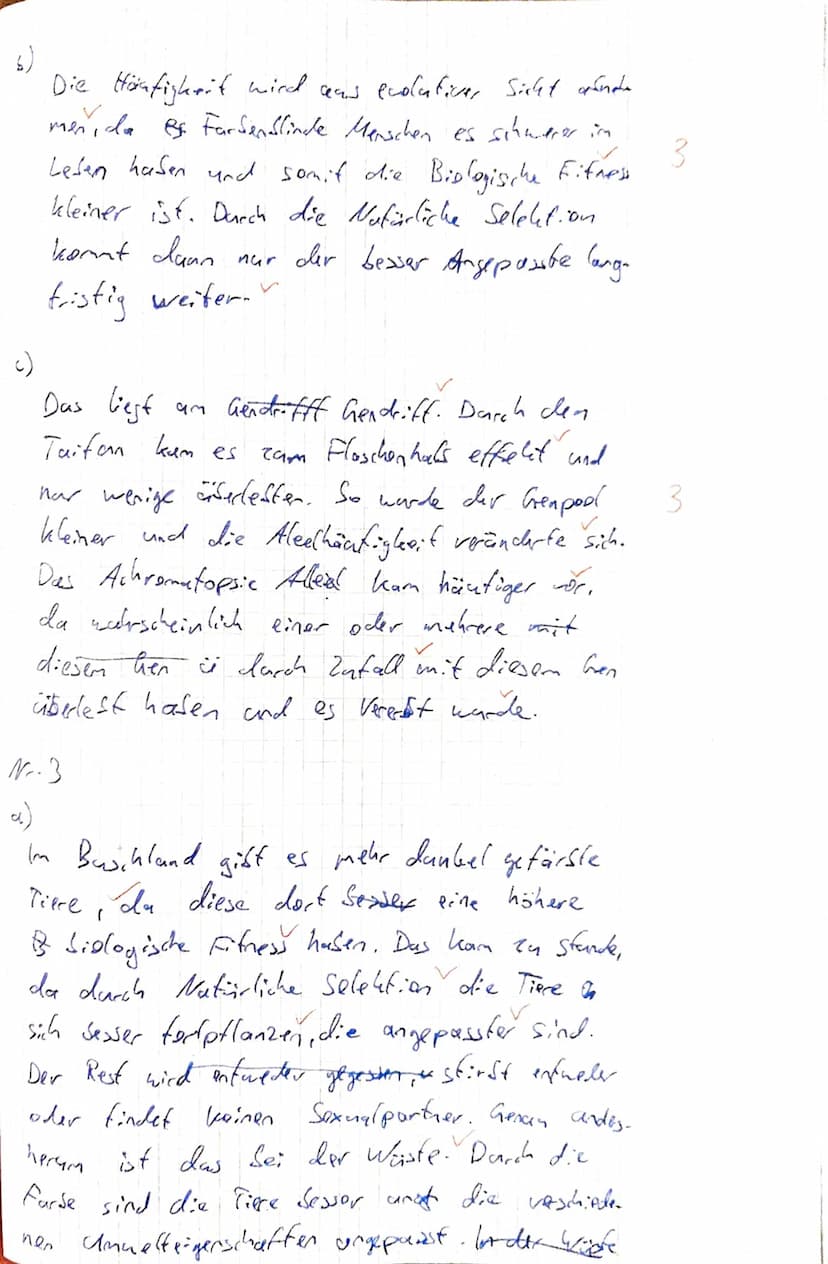 b)
Die Häufigkeit wird aus evolutiver Sicht abneh-
men, da Farbenblinde Menschen es schwerer im
Leben haben und somit die Biologische Fitness
3
kleiner ist. Durch die Natürliche Selektion
kommt dann nur der besser Angepasste lang-
fristig weiter.
c)
Das liegt am Gendrifft Gendriff. Durch den
Taifon kam es zum Flaschenhals effekt und
nur wenige überlebten. So wurde der Genpool
3
kleiner und die Aleelhäufigkeit veränderte sich.
Das Achromatopsie Alleel kam häufiger vor,
da wahrscheinlich einer oder mehrere mit
diesem Gen ü durch Zufall mit diesem Gen
überlebt haben und es Vererbt wurde.
Nr. 3
a)
Im Buschland gibt es mehr dunkel gefärbte
Tiere, da diese dort besser eine höhere
B biologische Fitness haben. Das kam zu stande,
da durch Natürliche Selektion die Tiere
sich besser fortpflanzen, die angepasster sind.
Der Rest wird entweder gegessen, stirbt entweder
oder findet keinen Sexualpartner. Genau anders-
herum ist das bei der Wüste. Durch die
Farbe sind die Tiere besser an die verschiede-
nen Umwelteigenschaften angepasst. In der Wüste